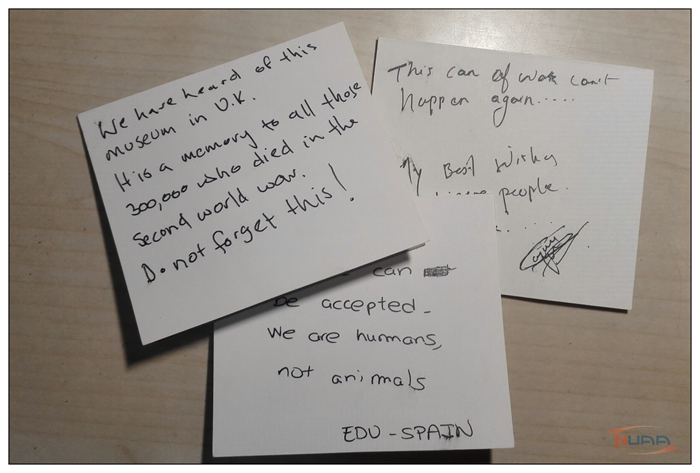 We have heard of this
museum in U.K.
It is a memory to all those
300,000 who died in the
second world war.
Do not forget this!
This can of work can't
happen again.....
My Best Wishes
people.
can
be accepted.
We are humans,
not animals
EDU - SPAIN